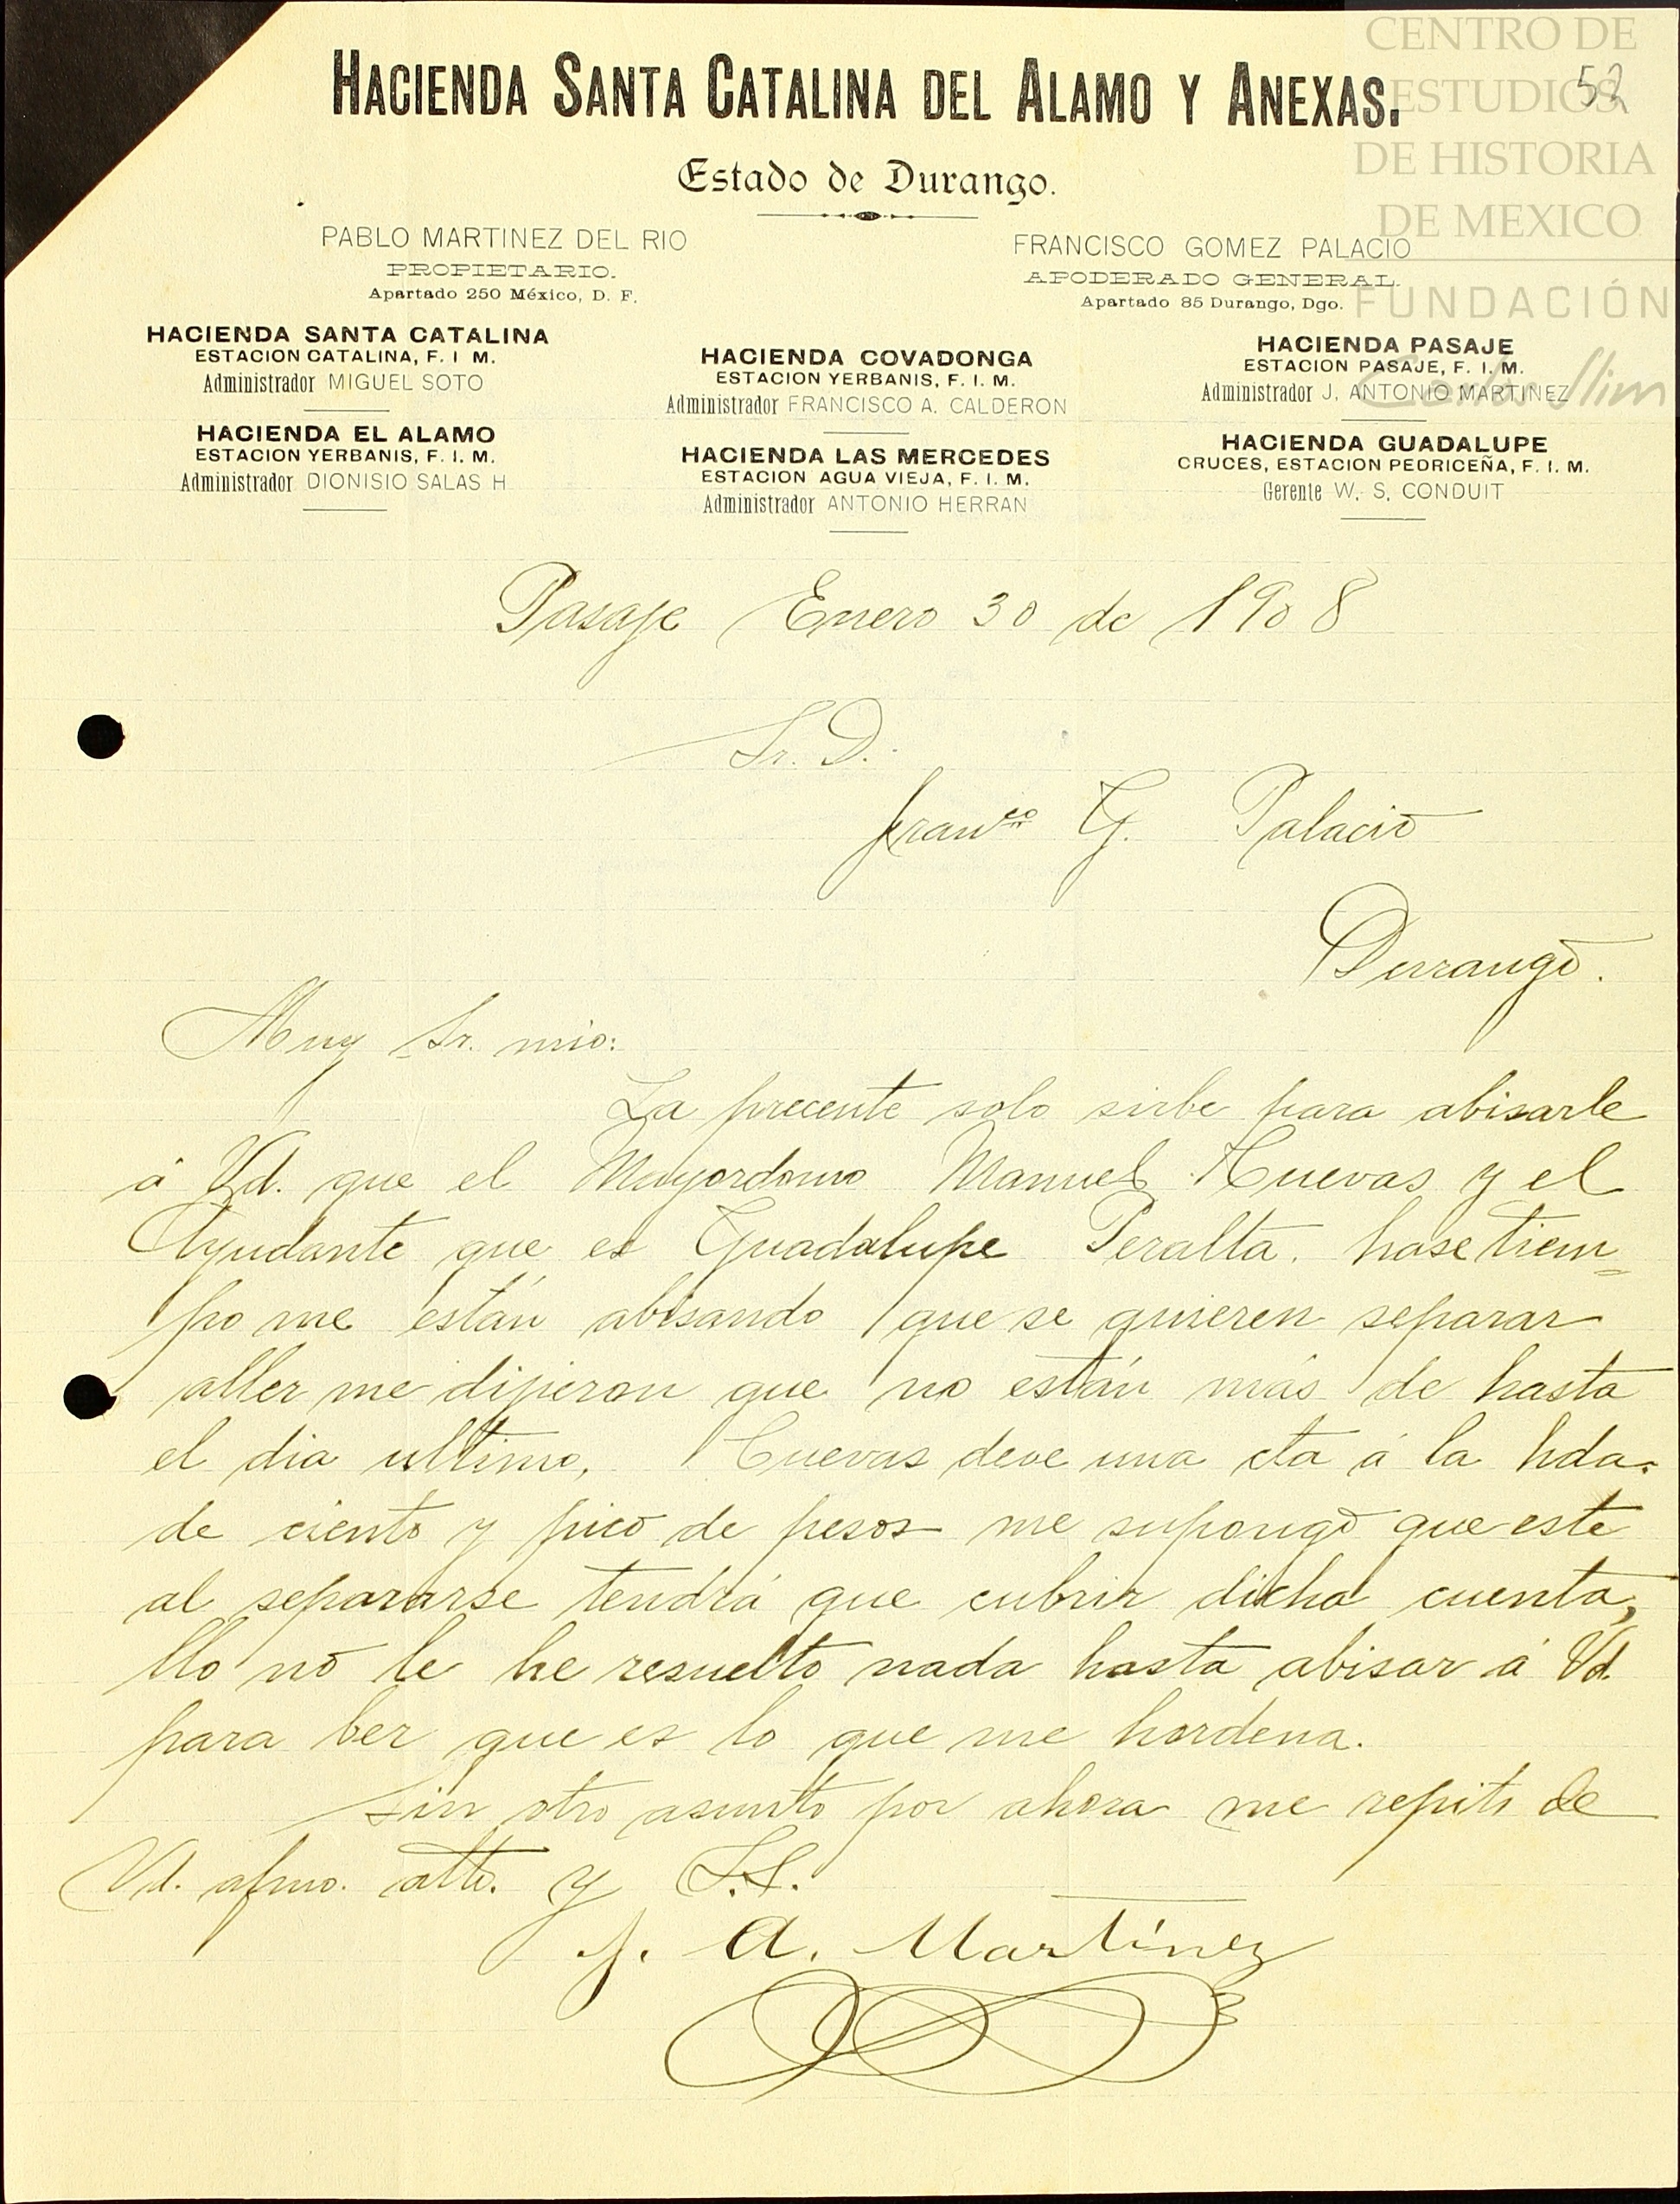 CENTRO DE
ESTUDIOS
DE HISTORIA
DE MEXICO
FUNDACIÓN
Carlos Slim
52
HACIENDA SANTA CATALINA DEL ALAMO Y ANEXAS.
Estado de Durango.
PABLO MARTINEZ DEL RIO
PROPIETARIO.
Apartado 250 México, D. F.
FRANCISCO GOMEZ PALACIO
APODERADO GENERAL.
Apartado 85 Durango, Dgo.
HACIENDA SANTA CATALINA
ESTACION CATALINA, F. I M.
Administrador MIGUEL SOTO
HACIENDA EL ALAMO
ESTACION YERBANIS, F. I. M.
Administrador DIONISIO SALAS H
HACIENDA COVADONGA
ESTACION YERBANIS, F. I. M.
Administrador FRANCISCO A. CALDERON
HACIENDA LAS MERCEDES
ESTACION AGUA VIEJA, F. I. M.
Administrador ANTONIO HERRAN
HACIENDA PASAJE
ESTACION PASAJE, F. I. M.
Administrador J. ANTONIO MARTINEZ
HACIENDA GUADALUPE
CRUCES, ESTACION PEDRICEÑA, F. I. M.
Gerente W. S. CONDUIT
Pasaje Enero 30 de 1908
Sr. D.
Franco G. Palacio
Durango.
Muy Sr. mio:
La precente solo sirbe para abisarle
á Vd. que el Mayordomo Manuel Cuevas y el
Ayudante que es Guadalupe Peralta. hase tiem=
po me están abisando que se quieren separar
aller me dijieron que no están más de hasta
el dia ultimo, Cuevas deve una cta á la hda.
de ciento y pico de pesos me supongo que este
al separarse tendrá que cubrir dicha cuenta,
llo no le he resuelto nada hasta abisar á Vd.
para ber que es lo que me hordena.
Sin otro asunto por ahora me repito de
Vd. afmo. atto. y S.S.
J. A. Martínez